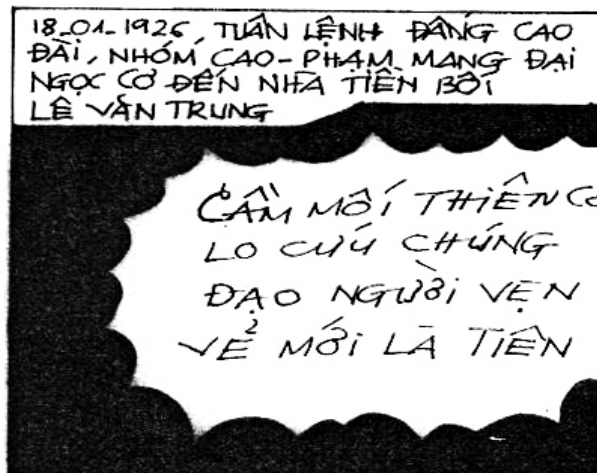 18-01-1926, TUÂN LỆNH ĐẤNG CAO
ĐÀI, NHÓM CAO-PHẠM MANG ĐẠI
NGỌC CƠ ĐẾN NHÀ TIỀN BỐI
LÊ VĂN TRUNG
CẦM MỐI THIÊN CƠ
LO CỨU CHÚNG
ĐẠO NGƯỜI VẸN
VẺ MỚI LÀ TIÊN